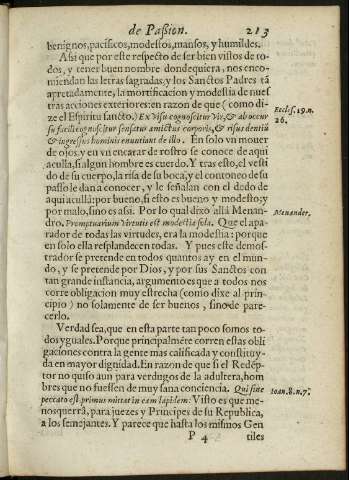 de Passion. 213
benignos, pacificos, modestos, mansos, y humildes.
Assi que por este respecto de ser bien vistos de to-
dos, y tener buen nombre dondequiera, nos enco-
miendan las letras sagradas, y los Sanctos Padres tã
apretadamente, la mortificacion y modestia de nues
tras acciones exteriores: en razon de que (como di-
ze el Espiritu sancto.) Ex visu cognoscitur vir, & ab occur
su faciei cognoscitur sensatus amictus corporis, & risus dentiũ
& ingressus hominis enuntiant de illo. En solo vn mouer
de ojos, y en vn encarar de rostro se conoce de aqui
aculla, si algun hombre es cuerdo. Y tras esto, el vesti
do de su cuerpo, la risa de su boca, y el contoneo de su
passo le dan a conocer, y le señalan con el dedo de
aqui aculla: por bueno, si esto es bueno y modesto; y
por malo, sino es assi. Por lo qual dixo alla Menan-
dro. Promptuarium virtutis est modestia sola. Que el apa-
rador de todas las virtudes, era la modestia: porque
en solo ella resplandecen todas. Y pues este demos-
trador se pretende en todos quantos ay en el mun-
do, y se pretende por Dios, y por sus Sanctos con
tan grande instancia, argumento es que a todos nos
corre obligacion muy estrecha (como dixe al prin-
cipio) no solamente de ser buenos, sino de pare-
cerlo.
Verdad sea, que en esta parte tan poco somos to-
dos yguales. Porque principalmẽte corren estas obli
gaciones contra la gente mas calificada y constituy-
da en mayor dignidad. En razon de que si el Redẽp-
tor no quiso aun para verdugos de la adultera, hom
bres que no fuessen de muy sana conciencia. Qui sine
peccato est primus mittat in eam lapidem: Visto es que me-
nos querrà, para juezes y Principes de su Republica,
a los semejantes. Y parece que hasta los mismos Gen
P 4 tiles
Eccles. 19. n.
26.
Menander.
Ioan. 8. n. 7.